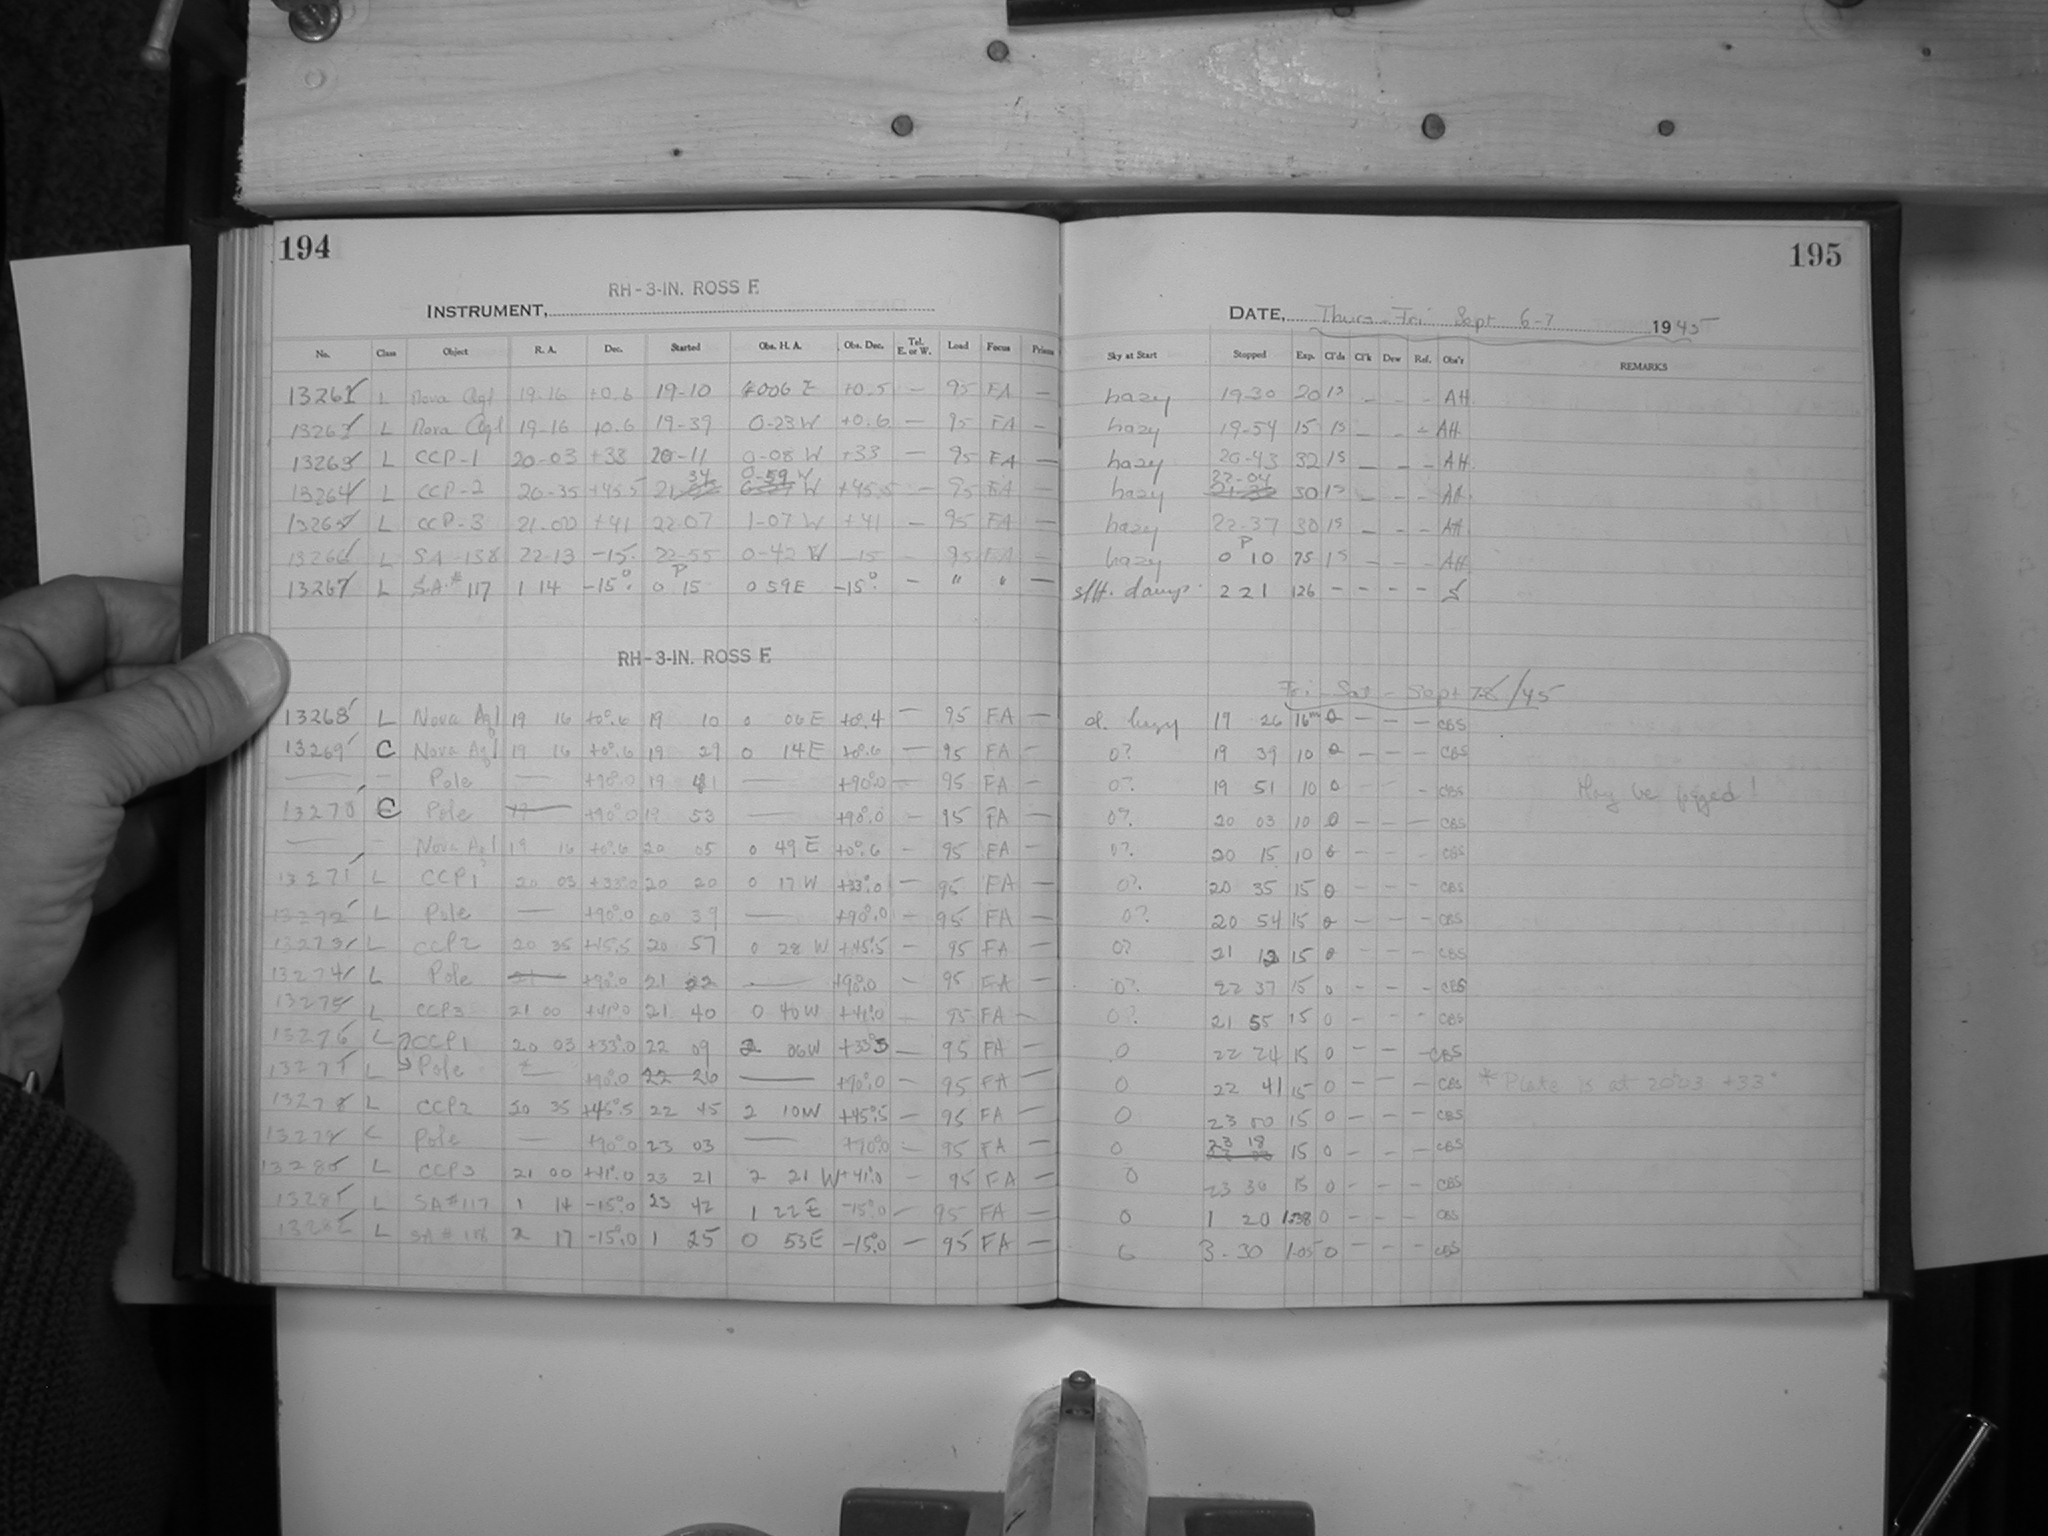 194
RH-3-IN. ROSS F.
INSTRUMENT,
No. Class Object R. A. Dec. Started Obs. H. A. Obs. Dec. Tel. E. or W. Load Focus Prism
13261 L Nova Aql 19-16 +0.6 19-10 006 E +0.5 — 95 FA —
L Nova Aql 19-16 +0.6 19-39 0-23 W +0.6 — 95 FA —
13263 L CCP-1 20-03 +33 20-11 0-08 W +33 — 95 FA —
13264 L CCP-2 20-35 +45.5 21 34 0-59 W +45.5 — 95 FA —
13265 L CCP-3 21-00 +41 22-07 1-07 W +41 — 95 FA —
13266 L SA-138 22-13 -15. 22-55 0-42 W -15 — 95 FA —
13267 L S.A.# 117 1 14 -15°. 0 P 15 0 59E -15°. — " " —
RH-3-IN. ROSS F.
13268 L Nova Aql 19 16 +0°.6 19 10 0 06E +0°.4 — 95 FA —
13269 C Nova Aql 19 16 +0°.6 19 29 0 14E +0°.6 — 95 FA —
— — Pole — +90°.0 19 41 — +90°.0 — 95 FA —
13270 C Pole — +90°.0 19 53 — +90°.0 — 95 FA —
— — Nova Aql 19 16 +0°.6 20 05 0 49 E +0°.6 — 95 FA —
13271 L CCP1 20 03 +33°.0 20 20 0 17 W +33°.0 — 95 FA —
13272 L Pole — +90°.0 20 39 — +90°.0 — 95 FA —
13273 L CCP2 20 35 +45.5 20 57 0 28 W +45°.5 — 95 FA —
13274 L Pole — +90°.0 21 22 — +90°.0 — 95 FA —
13275 L CCP3 21 00 +41°.0 21 40 0 40W +41°.0 — 95 FA —
13276 L CCP1 20 03 +33°.0 22 09 2 06W +33°.5 — 95 FA —
13277 L Pole * — +90°.0 22 26 — +90°.0 — 95 FA —
13278 L CCP2 20 35 +45°.5 22 45 2 10W +45°.5 — 95 FA —
13279 L Pole — +90°.0 23 03 — +90°.0 — 95 FA —
13280 L CCP3 21 00 +41°.0 23 21 2 21 W +41°.0 — 95 FA —
13281 L SA#117 1 14 -15°.0 23 42 1 22E -15°.0 — 95 FA —
13282 L SA# 118 2 17 -15°.0 1 25 0 53E -15°.0 — 95 FA —
195
DATE, Thurs-Fri Sept 6-7 1945
Sky at Start Stopped Exp. Cl'ds Cl'k Dew Ref. Obs'r REMARKS
hazy 19-30 20 1s — — - AH.
hazy 19-54 15 1s — — - AH.
hazy 20-43 32 1s — - - AH.
hazy 22-04 30 1s — - - AH.
hazy 22-37 30 1s — - - AH
hazy 0 P 10 75 1s — - - AH
slt. damp. 2 21 126 - - - -
Fri - Sat - Sept 7-8/45
cl. hazy 19 26 16m 0 — — - CBS
0? 19 39 10 0 — — - CBS
0? 19 51 10 0 - CBS May be fogged!
0? 20 03 10 0 - - — CBS
0? 20 15 10 0 - - - CBS
0? 20 35 15 0 - - - CBS
0? 20 54 15 0 - - - CBS
0? 21 12 15 0 - - - CBS
0? 22 37 15 0 - - - CBS
0? 21 55 15 0 - - - CBS
0 22 24 15 0 - - - CBS
0 22 41 15 0 - - - CBS * Plate is at 20h03 +33°
0 23 00 15 0 - - - CBS
0 23 18 15 0 - - - CBS
0 23 36 15 0 - - - CBS
0 1 20 1-38 0 - - - CBS
3-30 1-05 0 - - - CBS